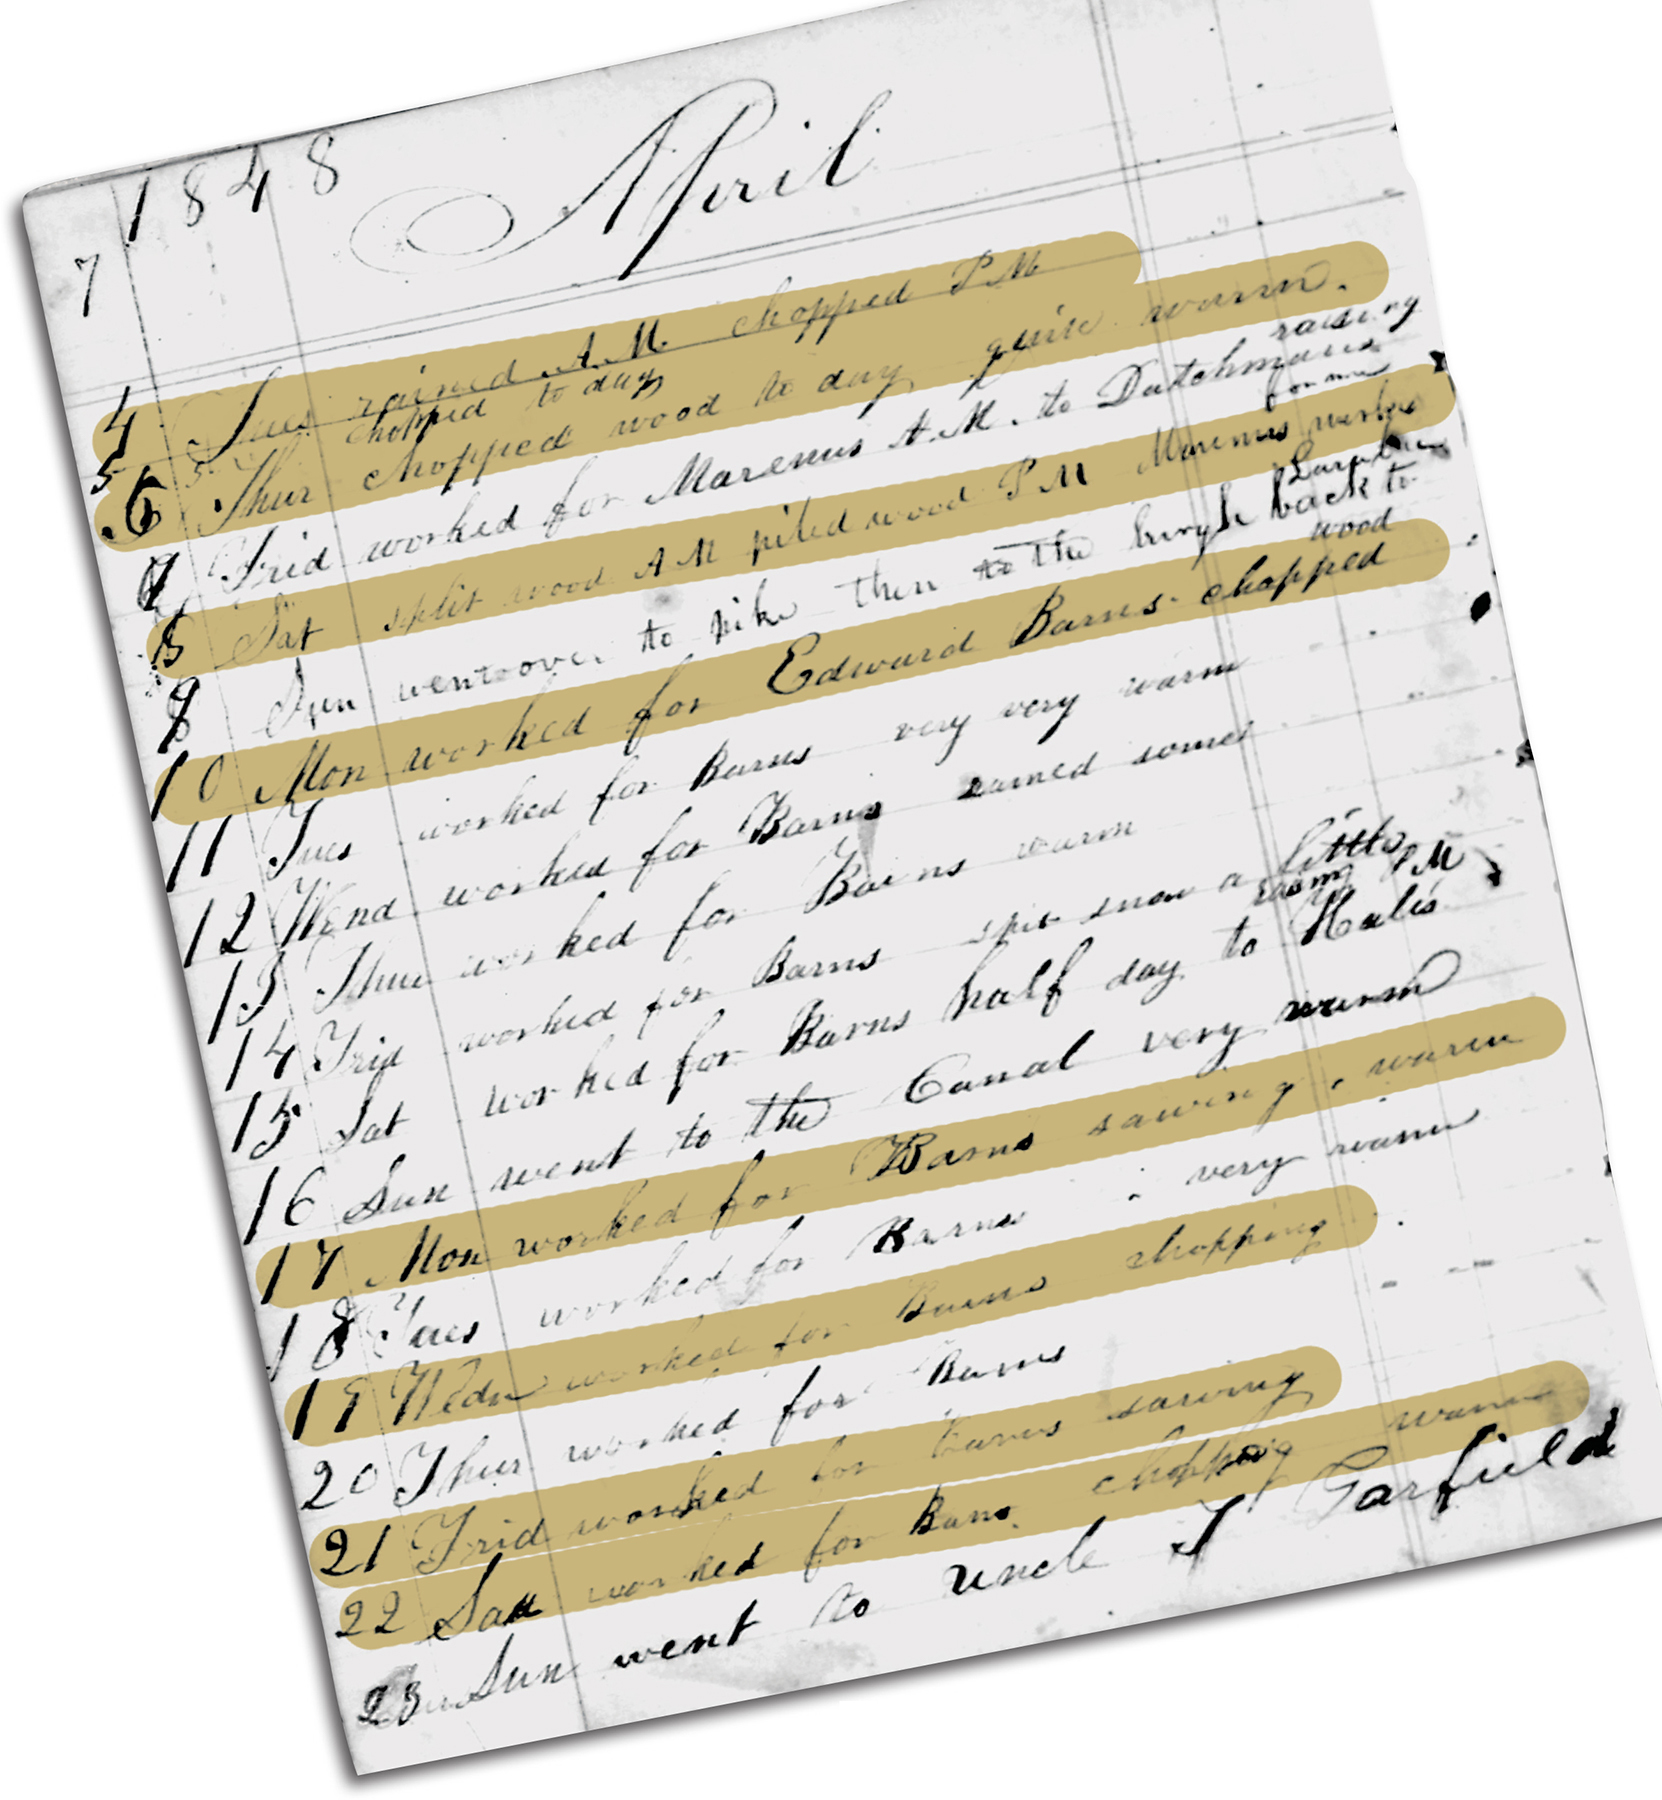 1848
April
7
4 Tues rained A.M. chopped P M
5 chopped to day
6 Thur chopped wood to day quite warm.
7 Frid worked for Marenus A.M. to Dutchmans raising
8 Sat split wood A M piled wood P M Marenus worked for me
9 Sun went over to pike then to the back to
10 Mon worked for Edward Barns chopped wood
11 Tues worked for Barns very very warm
12 Wend worked for Barns rained some
13 Thur worked for Barns warm
14 Frid worked for Barns spit snow a little
15 Sat worked for Barns half day to Hale's P M
16 Sun went to the Canal very warm
17 Mon worked for Barns sawing . warm
18 Tues worked for Barns . very warm
19 Wedn worked for Barns chopping
20 Thur worked for Barns
21 Frid worked for Barns sawing
22 Sat worked for Barns chopping warm
23 Sun went to uncle T Garfield